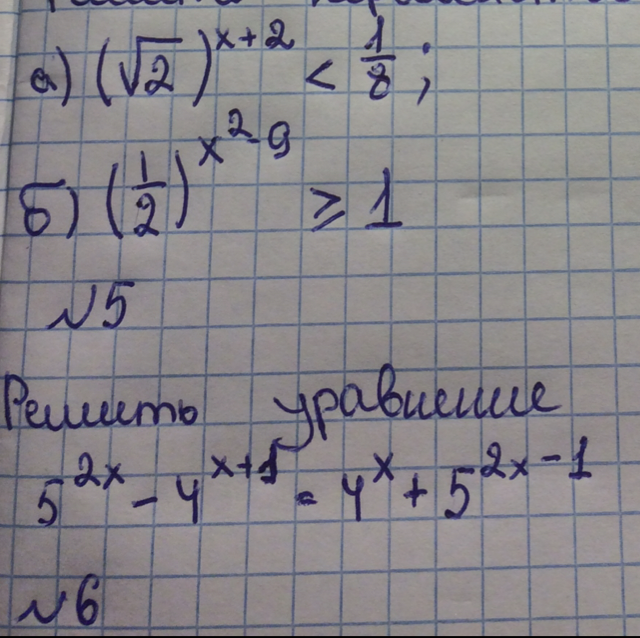 а) (√2)^(x+2) < 1/8 ;
б) (1/2)^(x^2-9) ≥ 1
№5
Решить уравнение
5^(2x) - 4^(x+1) = 4^x + 5^(2x-1)
№6